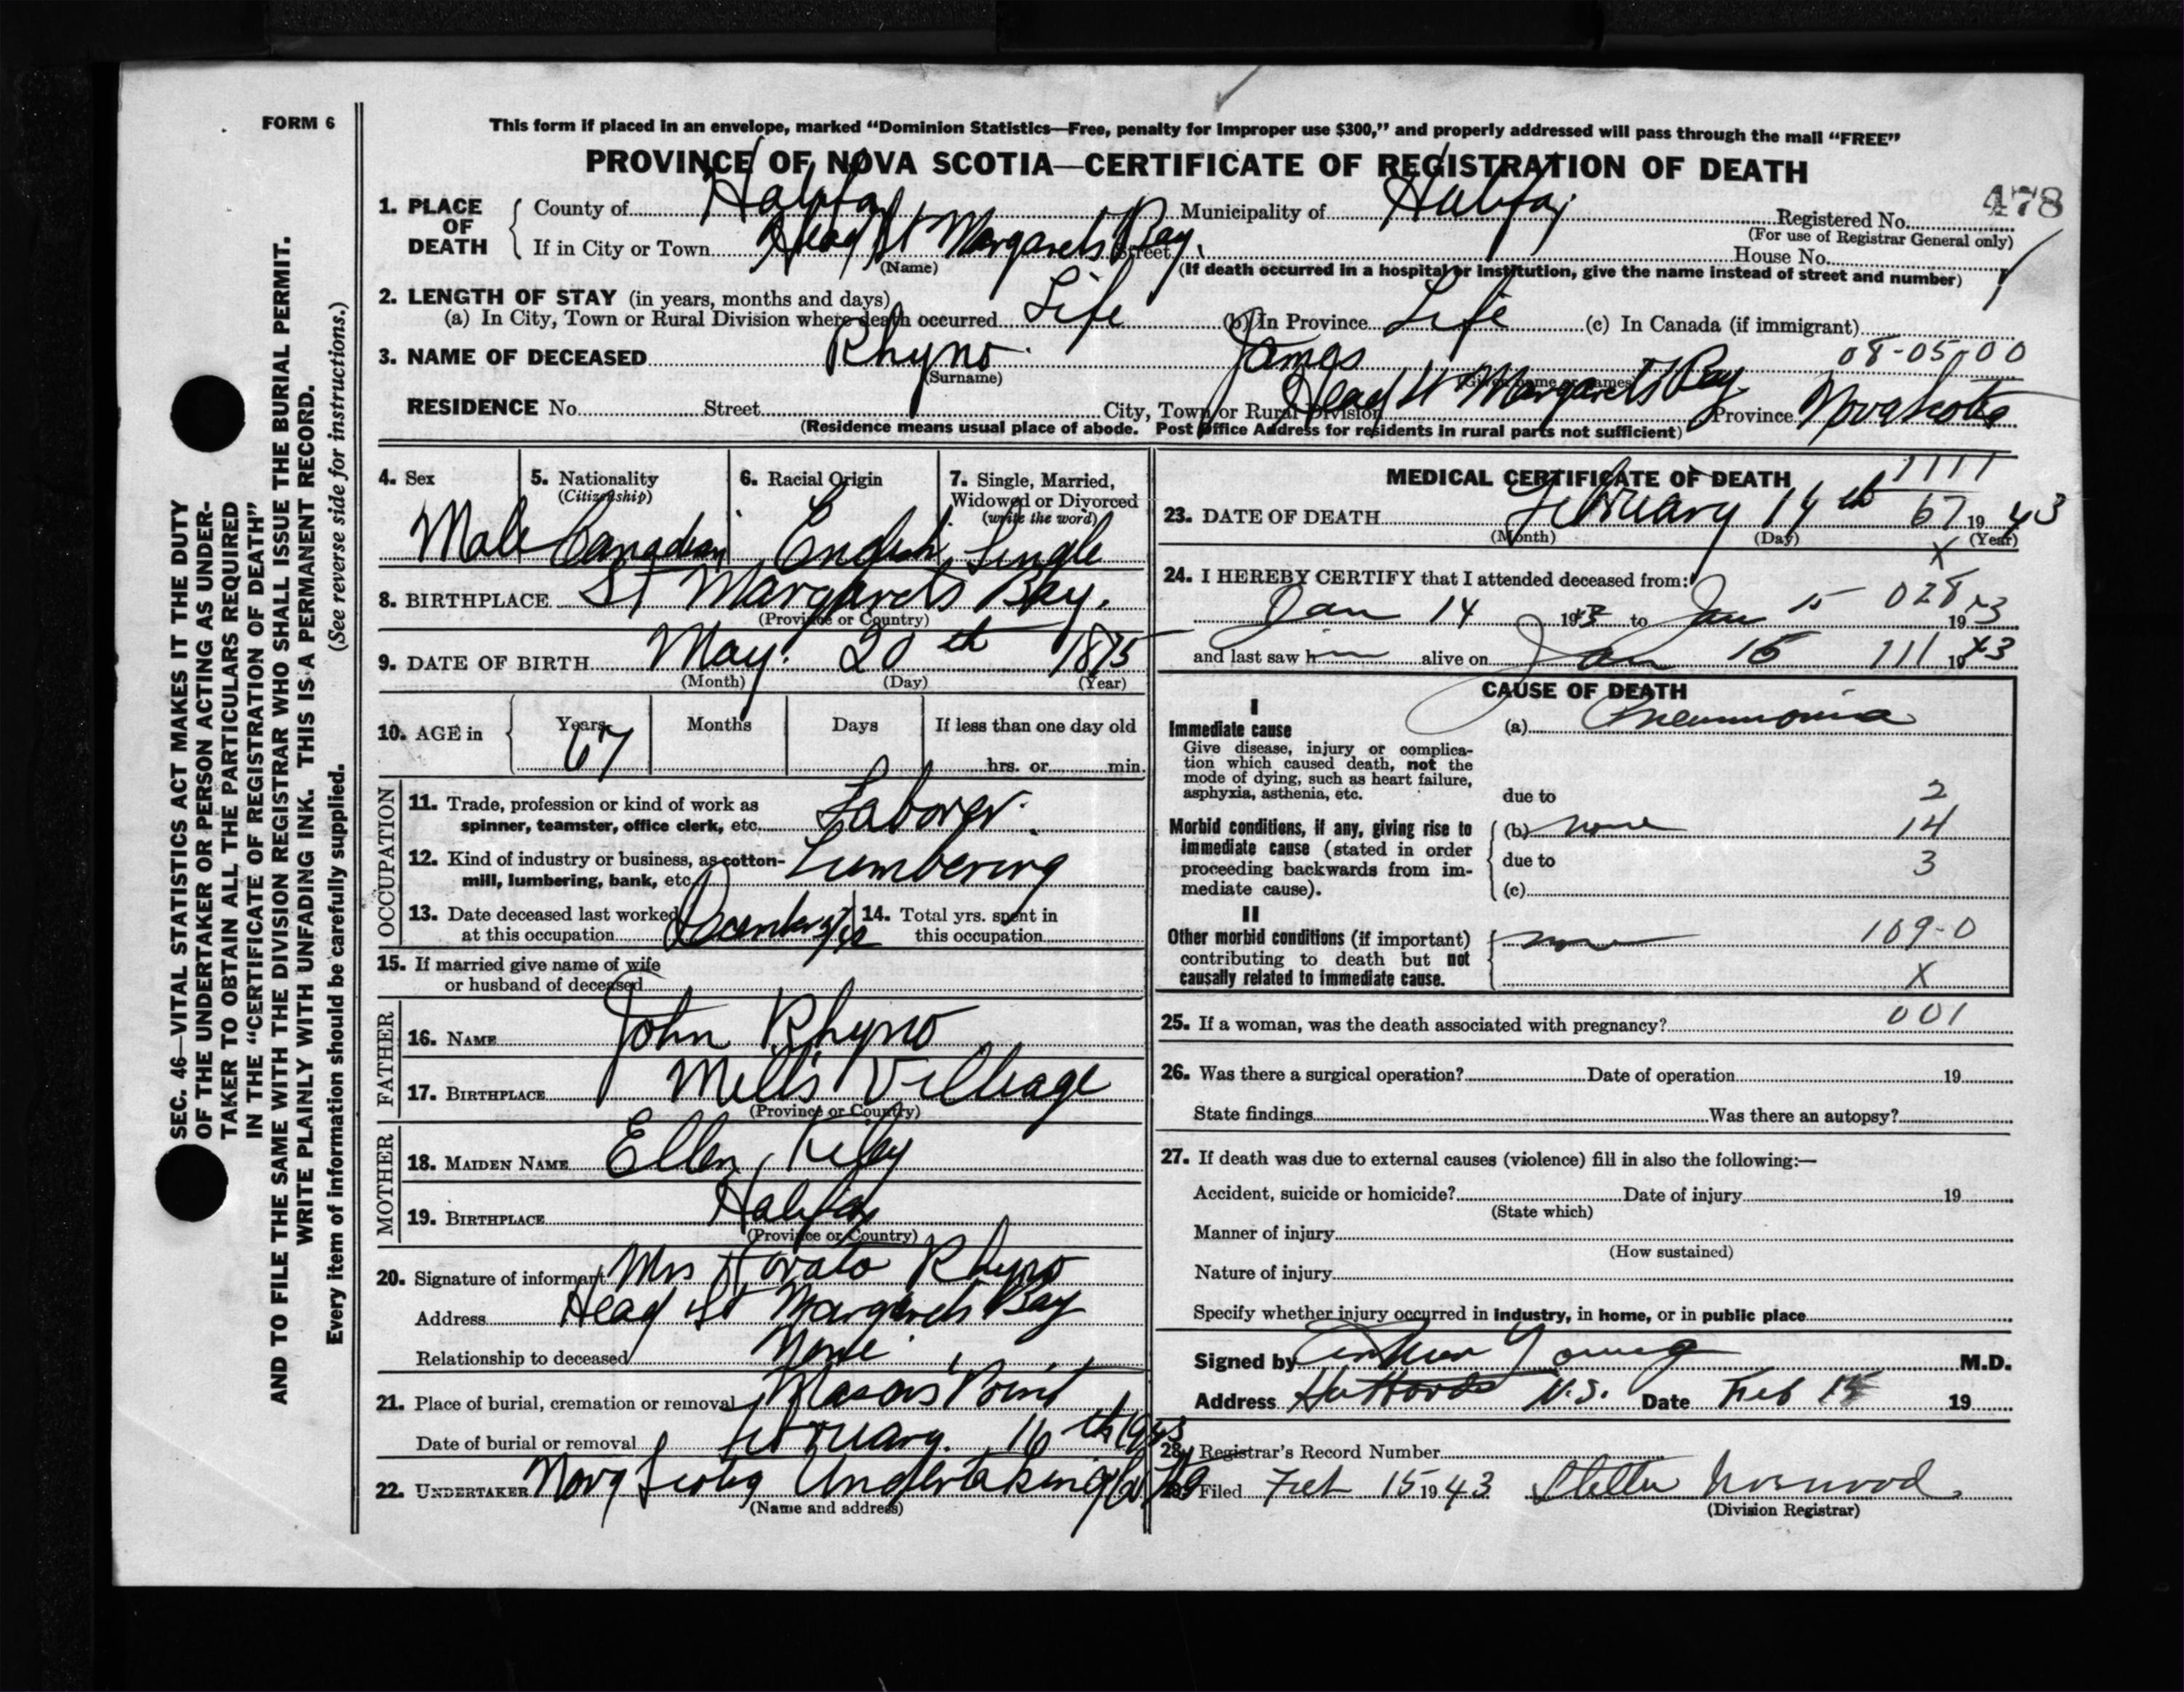 FORM 6
This form if placed in an envelope, marked “Dominion Statistics—Free, penalty for improper use $300,” and properly addressed will pass through the mail “FREE”
PROVINCE OF NOVA SCOTIA—CERTIFICATE OF REGISTRATION OF DEATH
478
1. PLACE OF DEATH County of Halifax Municipality of Halifax Registered No.
(For use of Registrar General only)
If in City or Town Head St Margarets Bay. Street House No.
(Name) (If death occurred in a hospital or institution, give the name instead of street and number)
2. LENGTH OF STAY (in years, months and days)
(a) In City, Town or Rural Division where death occurred Life (b) In Province Life (c) In Canada (if immigrant)
08-05-00
3. NAME OF DECEASED Rhyno James
(Surname) (Given name or names)
RESIDENCE No. Street City, Town or Rural Division Head St Margarets Bay Province Nova Scotia
(Residence means usual place of abode. Post Office Address for residents in rural parts not sufficient)
4. Sex 5. Nationality (Citizenship) 6. Racial Origin 7. Single, Married, Widowed or Divorced (write the word)
Male Canadian English Single
8. BIRTHPLACE St Margarets Bay.
(Province or Country)
9. DATE OF BIRTH May. 20th 1875
(Month) (Day) (Year)
10. AGE in Years Months Days If less than one day old
67 hrs. or min.
OCCUPATION
11. Trade, profession or kind of work as
spinner, teamster, office clerk, etc. Laborer.
12. Kind of industry or business, as cotton-
mill, lumbering, bank, etc. Lumbering
13. Date deceased last worked
at this occupation December
14. Total yrs. spent in
this occupation
15. If married give name of wife
or husband of deceased
FATHER
16. NAME John Rhyno
17. BIRTHPLACE Mills Village
(Province or Country)
MOTHER
18. MAIDEN NAME Ellen
19. BIRTHPLACE Halifax
(Province or Country)
20. Signature of informant Mrs Rhyno
Address Head St Margarets Bay
Relationship to deceased None
21. Place of burial, cremation or removal Masons Point
Date of burial or removal February. 16th 1943
22. UNDERTAKER Nova Scotia Undertaking Co
(Name and address)
MEDICAL CERTIFICATE OF DEATH
1111
23. DATE OF DEATH February 14th 67 1943
(Month) (Day) (Year)
X
24. I HEREBY CERTIFY that I attended deceased from:
Jan 14 1943 to Jan 15 028 1943
and last saw him alive on Jan 15 111 1943
CAUSE OF DEATH
I
Immediate cause (a) Pneumonia
Give disease, injury or complica-
tion which caused death, not the
mode of dying, such as heart failure,
asphyxia, asthenia, etc.
due to 2
Morbid conditions, if any, giving rise to (b) none 14
immediate cause (stated in order due to 3
proceeding backwards from im-
mediate cause). (c)
II
Other morbid conditions (if important) none 109-0
contributing to death but not
causally related to immediate cause. X
25. If a woman, was the death associated with pregnancy? 001
26. Was there a surgical operation? Date of operation 19
State findings Was there an autopsy?
27. If death was due to external causes (violence) fill in also the following:—
Accident, suicide or homicide? Date of injury 19
(State which)
Manner of injury
(How sustained)
Nature of injury
Specify whether injury occurred in industry, in home, or in public place
Signed by Arthur Young M.D.
Address N.S. Date Feb 15 19
28. Registrar's Record Number
29. Filed Feb 15 1943 Stella Norwood
(Division Registrar)
SEC. 46—VITAL STATISTICS ACT MAKES IT THE DUTY
OF THE UNDERTAKER OR PERSON ACTING AS UNDER-
TAKER TO OBTAIN ALL THE PARTICULARS REQUIRED
IN THE “CERTIFICATE OF REGISTRATION OF DEATH”
AND TO FILE THE SAME WITH THE DIVISION REGISTRAR WHO SHALL ISSUE THE BURIAL PERMIT.
WRITE PLAINLY WITH UNFADING INK. THIS IS A PERMANENT RECORD.
Every item of information should be carefully supplied. (See reverse side for instructions.)